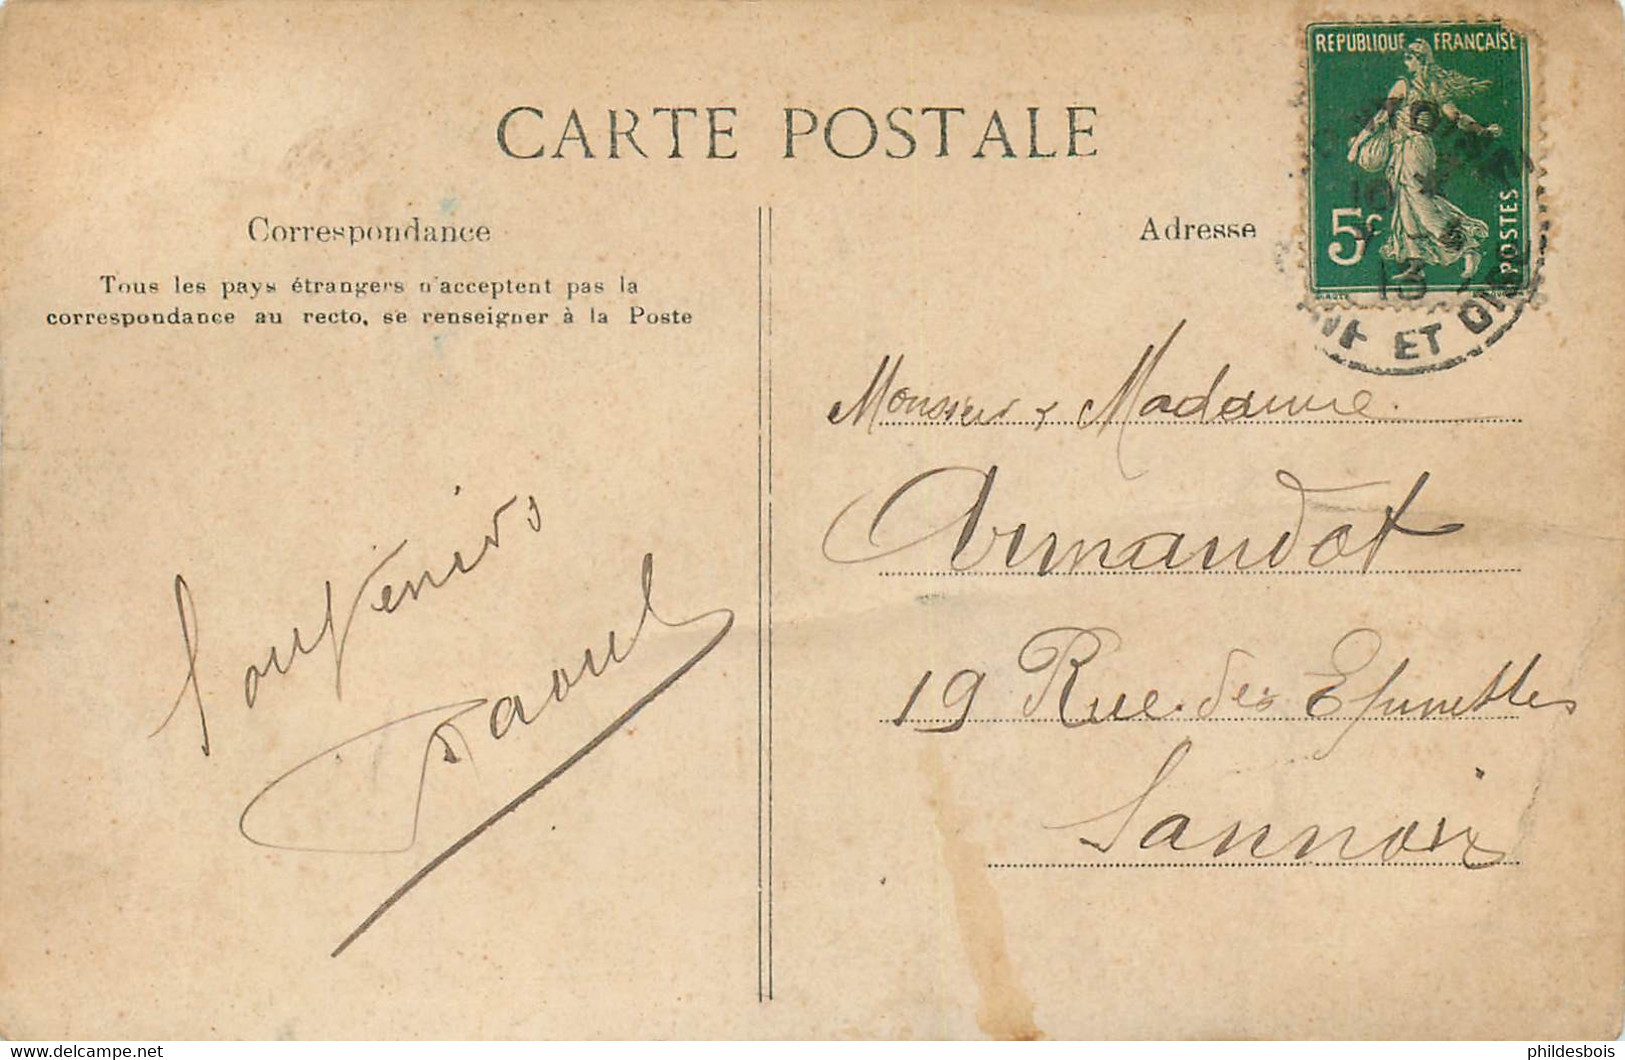 CARTE POSTALE
Correspondance
Tous les pays étrangers n'acceptent pas la
correspondance au recto, se renseigner à la Poste
Souvenirs
Raoul
Adresse
REPUBLIQUE FRANCAISE
5c
POSTES
ET OISE
13
Monsieur & Madame
Armandot
19 Rue des Epinettes
Sannois
phildesbois